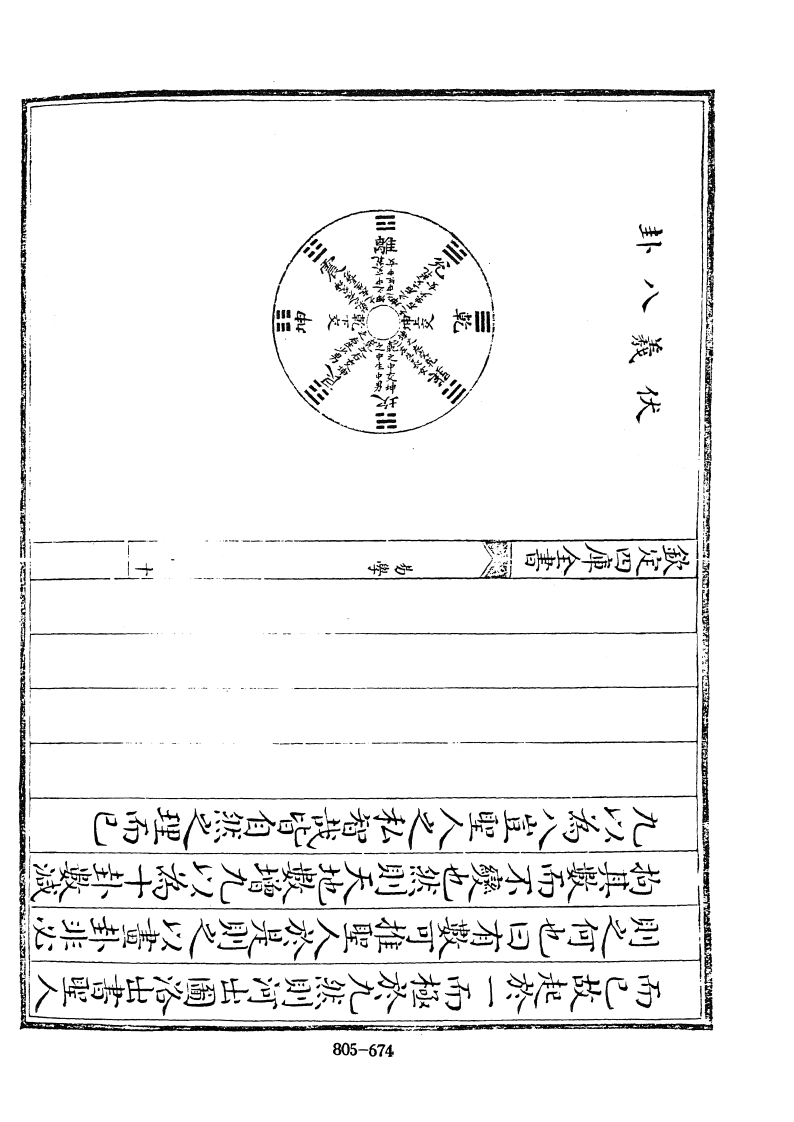 而已故起於一而極於九然則河出圖洛出書聖人
則之何也曰有數可推聖人於是則之以畫卦非必
拘其數而不變也然則天地數增九以為十卦數減
九以為八豈聖人之私智哉皆自然之理而已
欽定四庫全書
易學
十
伏羲八卦
乾
兌
離
震
坤
艮
坎
巽
805-674